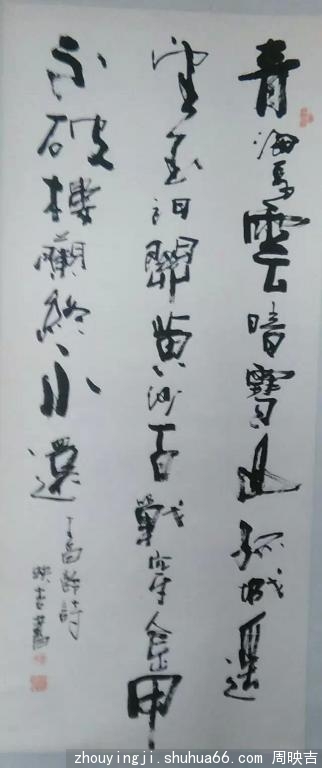 青海長雲暗雪山孤城遥
望玉门關黄沙百戰穿金甲
不破樓蘭終不還
王昌齡詩
映吉書
zhouyingji.shuhua66.com 周映吉